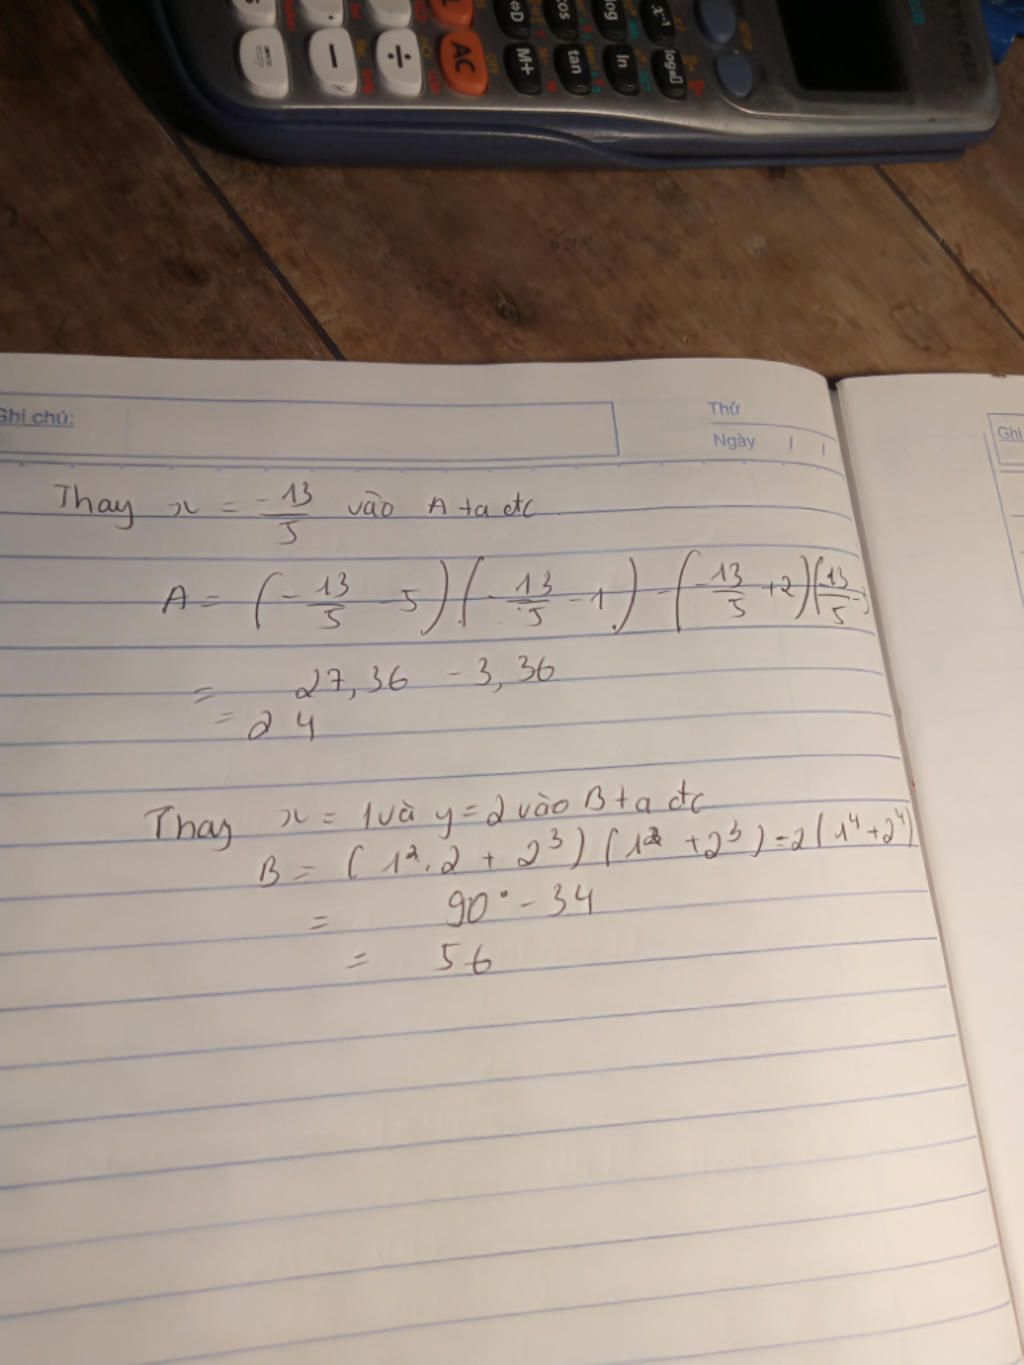 S⇔D
cos
log
x⁻¹
−
÷
AC
M+
tan
ln
Ghi chú:
Thứ
Ngày / /
Ghi
Thay x = -13/5 vào A ta đc
A = (-13/5 - 5)(-13/5 - 1) - (-13/5 + 2)(13/5
= 27,36 - 3,36
= 24
Thay x = 1 và y = 2 vào B ta đc
B = (1².2 + 2³)(1² + 2³) - 2(1⁴ + 2⁴)
= 90 - 34
= 56